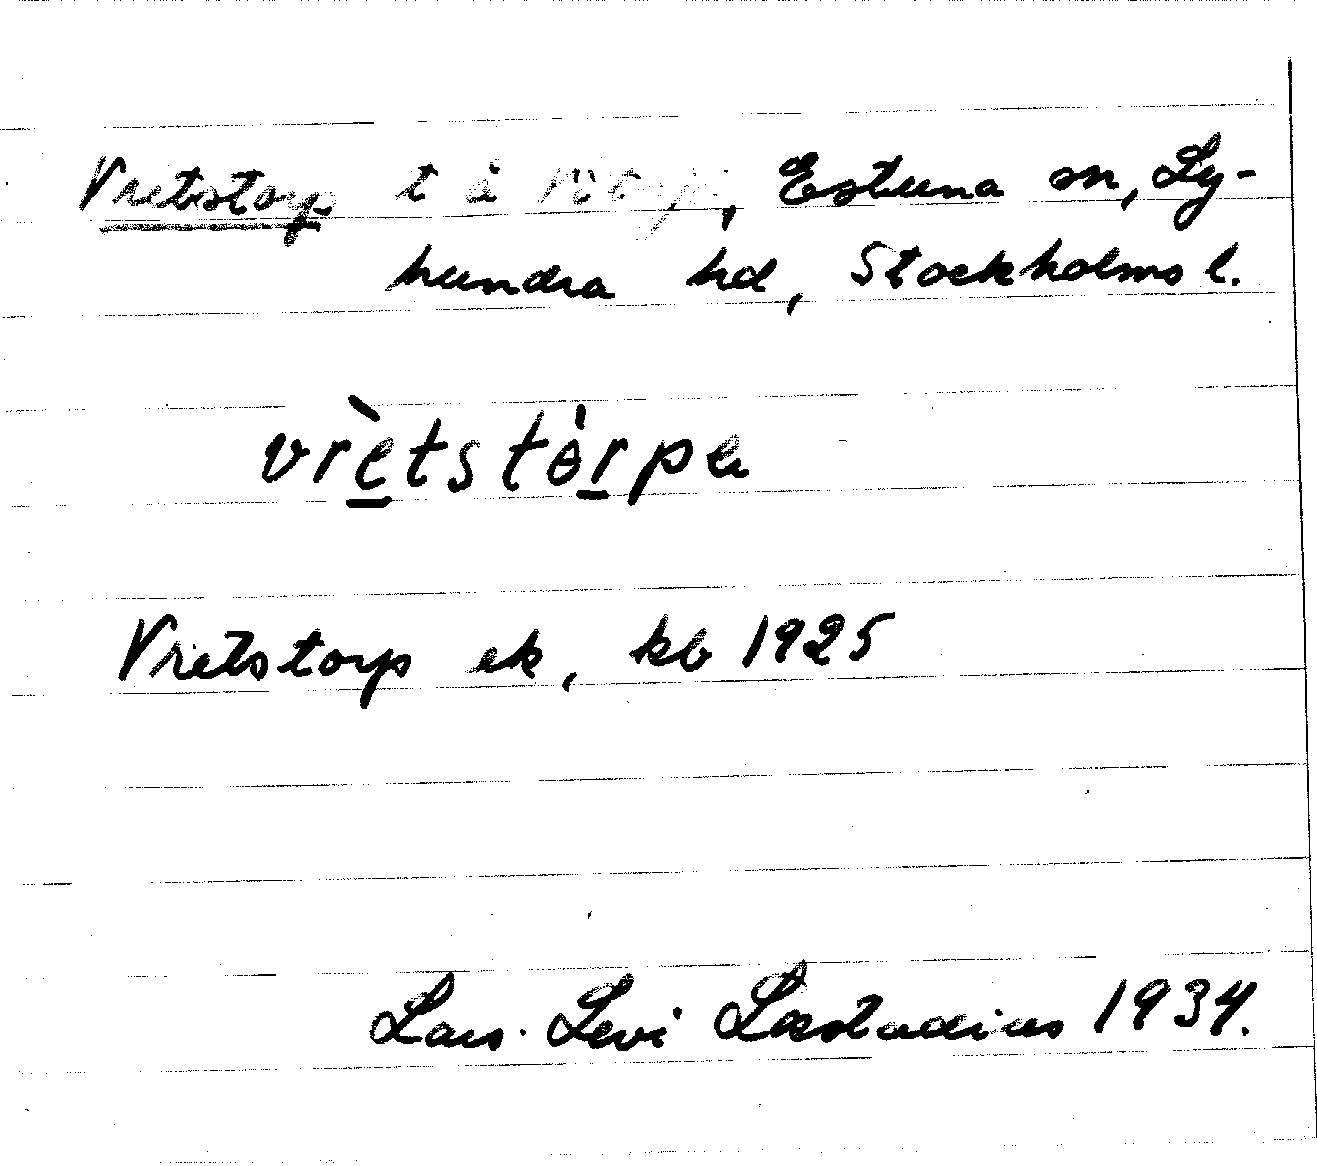 Vretstorp t å, Estuna sn, Ly-
hundra hd, Stockholms l.
vrètstòrpa
Vretstorp ek, kb 1925
Lars-Levi Læstadius 1934.